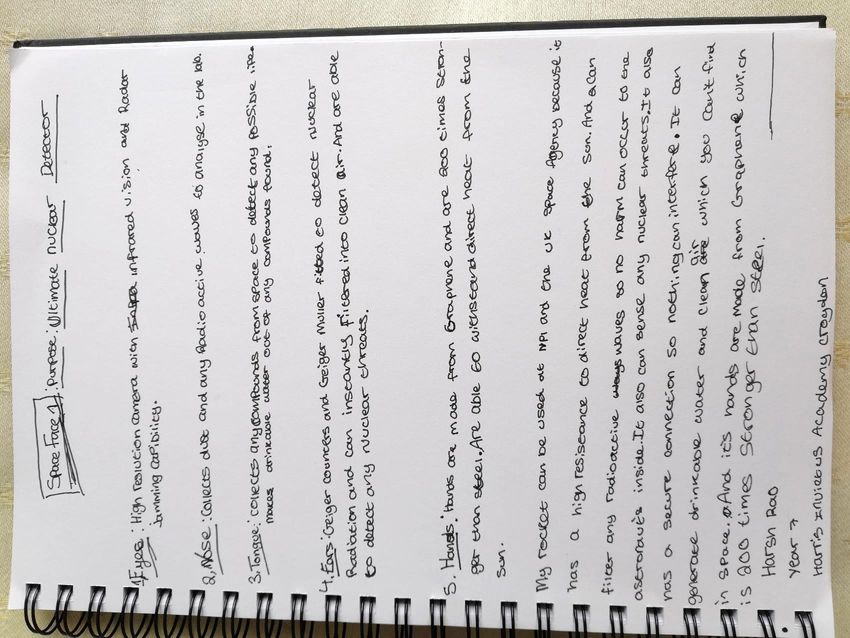 Space Face 1: Purpose: Ultimate nuclear Detector
1. Eyes: High resolution camera with infrared vision and Radar
Jamming capibility.
2. Nose: Collects dust and any Radioactive waves to analyse in the lab.
3. Tongue: collects any compounds from space to detect any possible life.
makes drinkable water out of any compounds found.
4. Ears: Geiger counters and Geiger Muller fitted to detect nuclear
Radiation and can instantly filtered into clean air. And are able
to detect any nuclear threats.
5. Hands: Hands are made from Graphene and are 200 times stron-
ger than steel. Are able to withstand direct heat from the
sun.
My rocket can be used at and the UK Space Agency because it
has a high resistance to direct heat from the sun. And can
filter any radioactive waves so no harm can occur to the
astronauts inside. It also can sense any nuclear threats. It also
has a secure connection so nothing can interfere. It can
generate drinkable water and clean air which you can't find
in space. And it's hands are made from Graphene which
is 200 times stronger than steel.
Harsh Rao
Year 7
Harris Invictus Academy Croydon